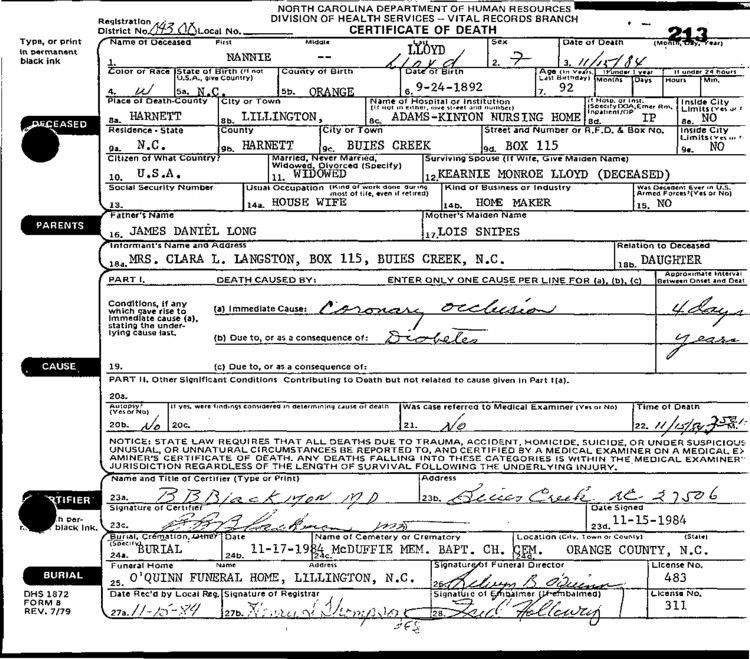 NORTH CAROLINA DEPARTMENT OF HUMAN RESOURCES
DIVISION OF HEALTH SERVICES -- VITAL RECORDS BRANCH
CERTIFICATE OF DEATH
Registration District No. Local No. 213
Type, or print in permanent black ink
Name of Deceased First Middle Sex Date of Death (Month, Day, Year)
1. NANNIE -- LLOYD Lloyd 2. F 3. 11/15/84
Color or Race State of Birth (If not U.S.A., give Country) County of Birth Date of Birth Age (In Years, Last Birthday) If under 1 year Months Days If under 24 hours Hours Min.
4. W 5a. N.C. 5b. ORANGE 6. 9-24-1892 7. 92
DECEASED
Place of Death-County City or Town Name of Hospital or Institution (If not in either, give street and number) If Hosp. or Inst. (Specify DOA, Emer Rm, Inpatient/OP Inside City Limits (Yes or
8a. HARNETT 8b. LILLINGTON, 8c. ADAMS-KINTON NURSING HOME 8d. IP 8e. NO
Residence - State County City or Town Street and Number or R.F.D. & Box No. Inside City Limits (Yes or
9a. N.C. 9b. HARNETT 9c. BUIES CREEK 9d. BOX 115 9e. NO
Citizen of What Country? Married, Never Married, Widowed, Divorced (Specify) Surviving Spouse (If Wife, Give Maiden Name)
10. U.S.A. 11. WIDOWED 12. KEARNIE MONROE LLOYD (DECEASED)
Social Security Number Usual Occupation (Kind of work done during most of life, even if retired) Kind of Business or Industry Was Decedent Ever in U.S. Armed Forces? (Yes or No)
13. 14a. HOUSE WIFE 14b. HOME MAKER 15. NO
PARENTS
Father's Name Mother's Maiden Name
16. JAMES DANIEL LONG 17. LOIS SNIPES
Informant's Name and Address Relation to Deceased
18a. MRS. CLARA L. LANGSTON, BOX 115, BUIES CREEK, N.C. 18b. DAUGHTER
PART I. DEATH CAUSED BY: ENTER ONLY ONE CAUSE PER LINE FOR (a), (b), (c) Approximate Interval Between Onset and Deat
Conditions, if any which gave rise to immediate cause (a), stating the underlying cause last.
(a) Immediate Cause: Coronary Occlusion 4 days
(b) Due to, or as a consequence of: Diabetes years
CAUSE
19. (c) Due to, or as a consequence of:
PART II. Other Significant Conditions Contributing to Death but not related to cause given in Part I(a).
20a.
Autopsy? (Yes or No) If yes, were findings considered in determining cause of death Was case referred to Medical Examiner (Yes or No) Time of Death
20b. No 20c. 21. No 22. 11/15/84 M.
NOTICE: STATE LAW REQUIRES THAT ALL DEATHS DUE TO TRAUMA, ACCIDENT, HOMICIDE, SUICIDE, OR UNDER SUSPICIOUS
UNUSUAL, OR UNNATURAL CIRCUMSTANCES BE REPORTED TO, AND CERTIFIED BY A MEDICAL EXAMINER ON A MEDICAL EX
AMINER'S CERTIFICATE OF DEATH. ANY DEATHS FALLING INTO THESE CATEGORIES IS WITHIN THE MEDICAL EXAMINER'
JURISDICTION REGARDLESS OF THE LENGTH OF SURVIVAL FOLLOWING THE UNDERLYING INJURY.
Name and Title of Certifier (Type or Print) Address
23a. B B Blackmon MD 23b. Buies Creek NC 27506
RTIFIER
Signature of Certifier Date Signed
23c. B B Blackmon MD 23d. 11-15-1984
black ink.
Burial, Cremation, Other (Specify) Date Name of Cemetery or Crematory Location (City, Town or County) (State)
24a. BURIAL 24b. 11-17-1984 24c. McDUFFIE MEM. BAPT. CH. CEM. 24d. ORANGE COUNTY, N.C.
BURIAL
Funeral Home Name Address Signature of Funeral Director License No.
25. O'QUINN FUNERAL HOME, LILLINGTON, N.C. 26. B. O'Quinn 483
DHS 1872
FORM 8
REV. 7/79
Date Rec'd by Local Reg. Signature of Registrar Signature of Embalmer (If embalmed) License No.
27a. 11-15-84 27b. Thompson 28. Fred Holloway 311